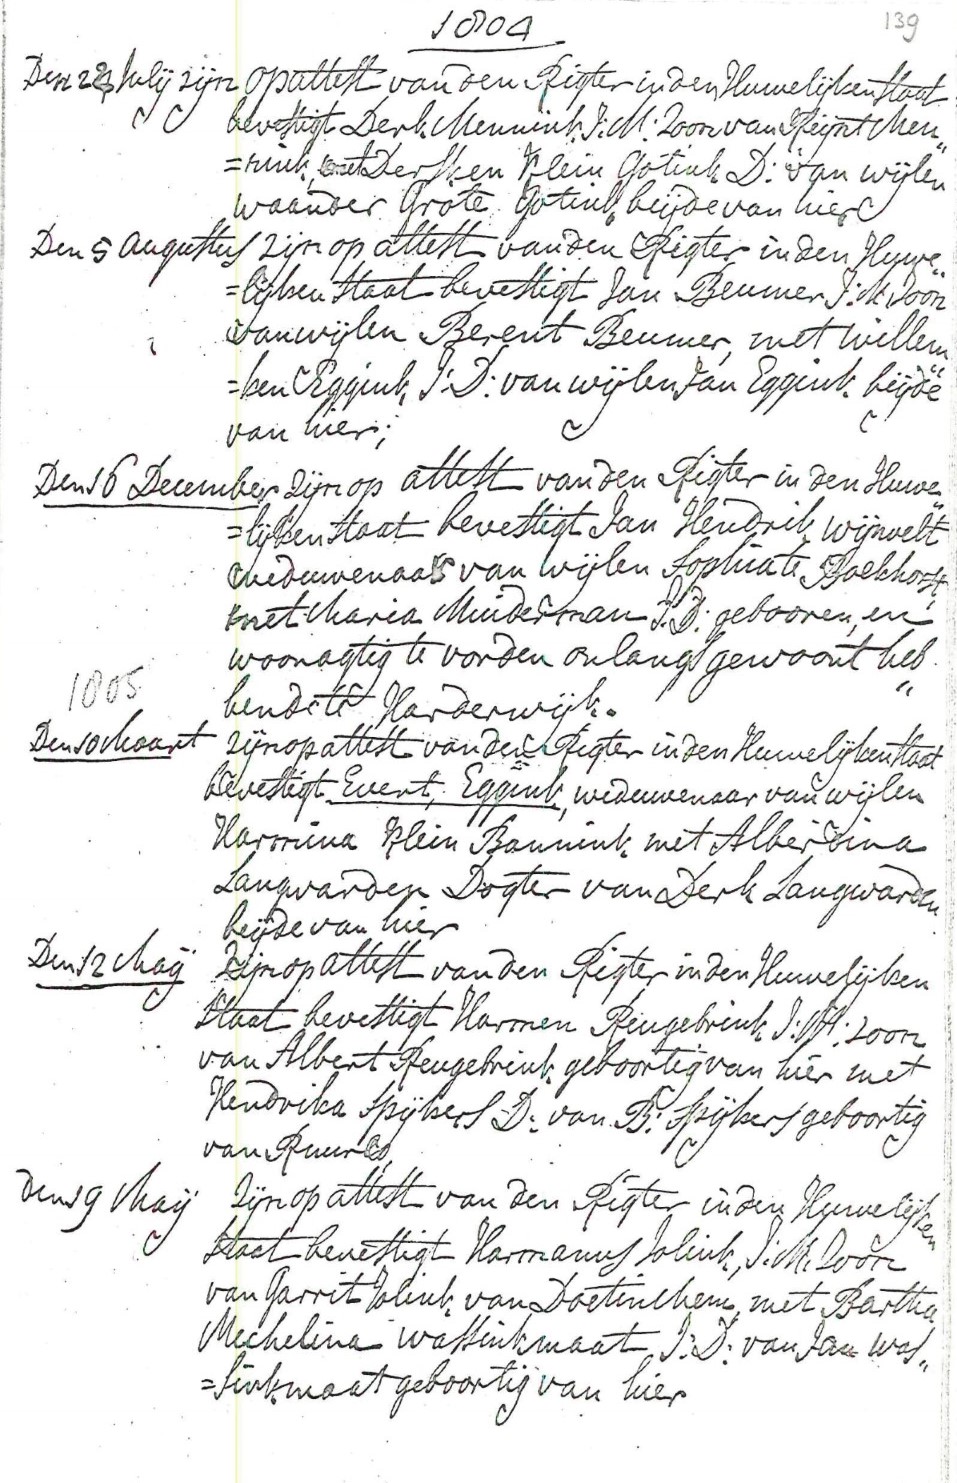 139
1804
Den 22 July zijn op attest van den Rigter in den Huwelijken staat
bevestigt Derk Mennink J: M: Zoon van Reijnt Men„
=nink, met Dersken Klein Gotink D: van wijlen
waander Grote Gotink beijde van hier
Den 5 Augustus zijn op attest van den Rigter in den Huwe„
=lijken staat bevestigt Jan Beumer J: M: Zoon
van wijlen Berent Beumer, met Willem„
=ken Eggink J: D: van wijlen Jan Eggink beijde
van hier;
Den 16 December zijn op attest van den Rigter in den Huwe„
=lijken staat bevestigt Jan Hendrik wijnvelt
weduwenaar van wijlen Sophia te Boekhorst
met Maria Minderman J: D: gebooren, en
woonagtig te vorden onlangs gewoont heb„
1805
bende te Harderwijk.
Den 10 Maart zijn op attest van den Rigter in den Huwelijken staat
bevestigt Evert Eggink, weduwenaar van wijlen
Harmina Klein Bannink met Alberdina
Langwarden Dogter van Derk Langwarden
beijde van hier
Den 12 Maij zijn op attest van den Rigter in den Huwelijken
staat bevestigt Harmen Reugebrink J: M: zoon
van Albert Reugebrink geboortig van hier met
Hendrika Spijkers D: van B: Spijkers geboortig
van Ruurlo
Den 19 Maij zijn op attest van den Rigter in den Huwelijken
staat bevestigt Harmanus Jolink, J: M: Zoon
van Garrit Jolink van Doetinchem, met Bartha
Mechelina wassinkmaat J: D: van Jan was„
=sinkmaat geboortig van hier